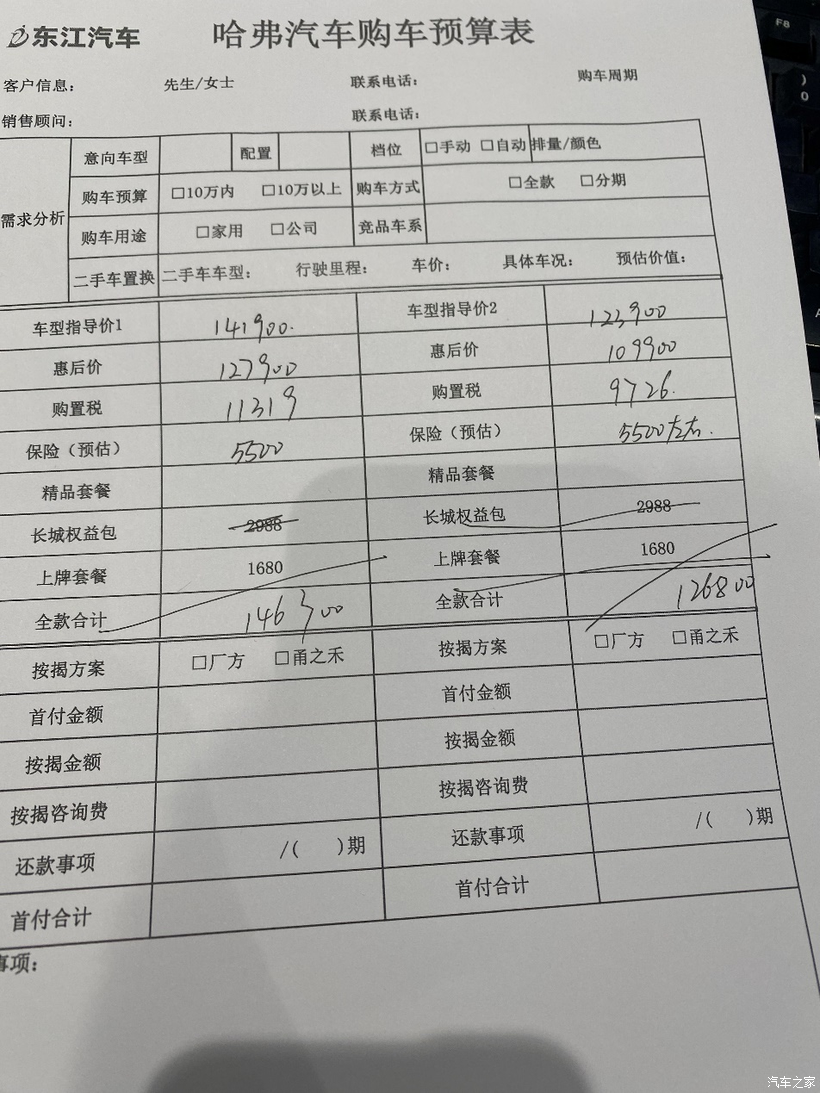 东江汽车 哈弗汽车购车预算表
客户信息： 先生/女士 联系电话： 购车周期
销售顾问： 联系电话：
需求分析 意向车型 配置 档位 □手动 □自动 排量/颜色
购车预算 □10万内 □10万以上 购车方式 □全款 □分期
购车用途 □家用 □公司 竞品车系
二手车置换 二手车车型： 行驶里程： 车价： 具体车况： 预估价值：
车型指导价1 141900. 车型指导价2 123900
惠后价 127900 惠后价 109900
购置税 11319 购置税 9726.
保险（预估） 5500 保险（预估） 5500左右.
精品套餐 精品套餐
长城权益包 2988 长城权益包 2988
上牌套餐 1680 上牌套餐 1680
全款合计 146300 全款合计 126800
按揭方案 □厂方 □甬之禾 按揭方案 □厂方 □甬之禾
首付金额 首付金额
按揭金额 按揭金额
按揭咨询费 按揭咨询费
还款事项 /( )期 还款事项 /( )期
首付合计 首付合计
事项：
F8
)
0
汽车之家